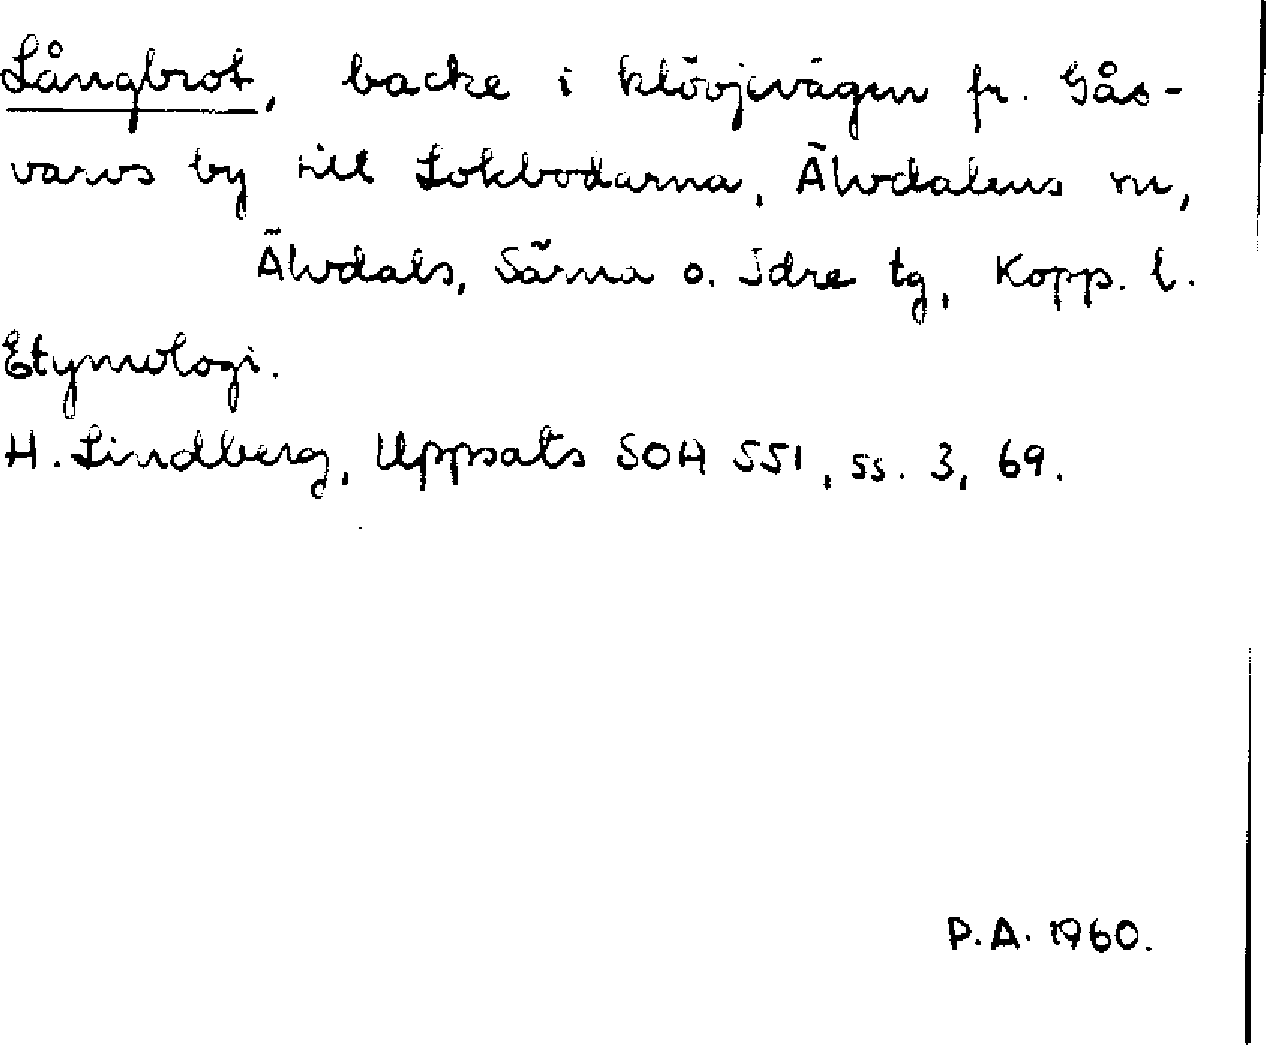 Långbrot, backe i klövjevägen fr. Gås-
varvs by till Lokbodarna, Älvdalens sn,
Älvdals, Särna o. Idre tg, Kopp. l.
Etymologi.
H. Lindberg, Uppsats SOH 551, ss. 3, 69.
P.A. 1960.